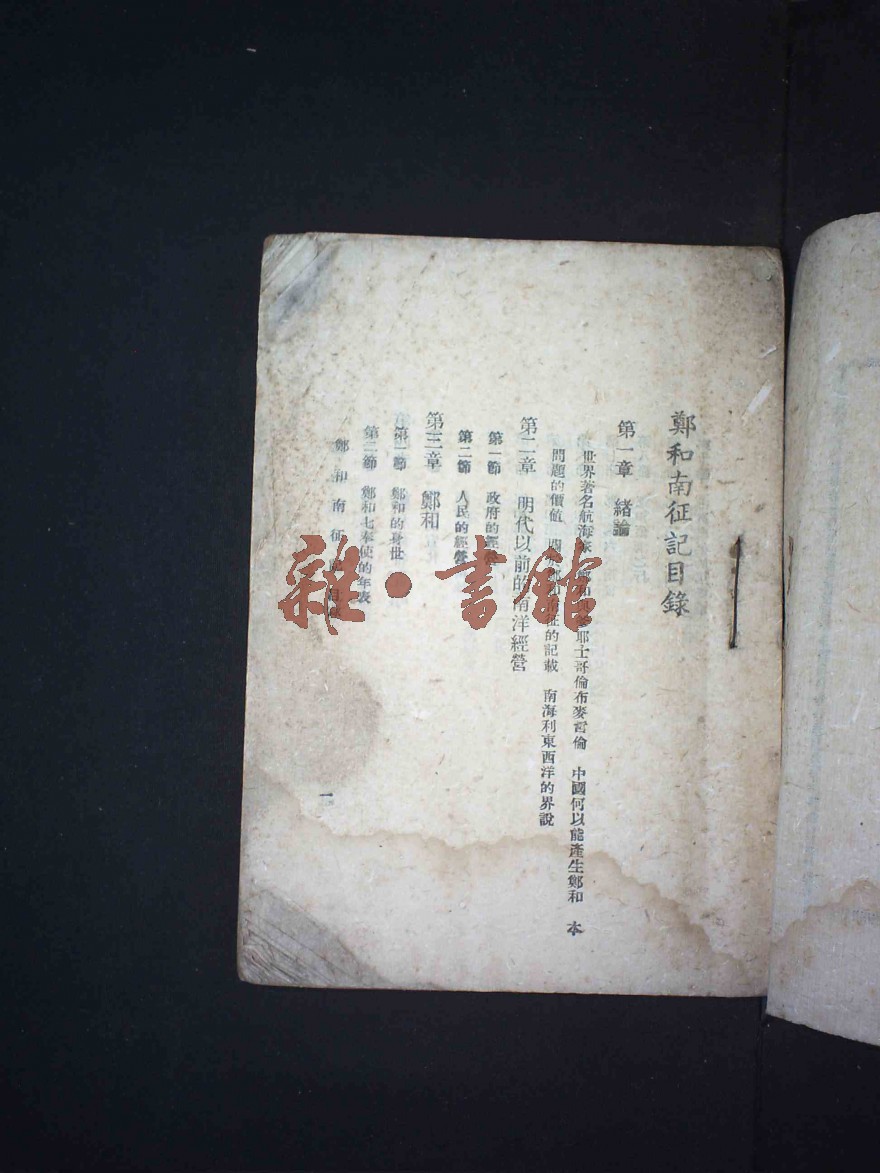 鄭和南征記目錄
第一章 緒論
世界著名航海家 耶士哥倫布麥哲倫 中國何以能產生鄭和 本
問題的價值 南征的記載 南海利東西洋的界說
第二章 明代以前的南洋經營
第一節 政府的經營
第二節 人民的經營
第三章 鄭和
第一節 鄭和的身世
第二節 鄭和七奉使的年表
鄭和南征記目錄
一
雜·書館